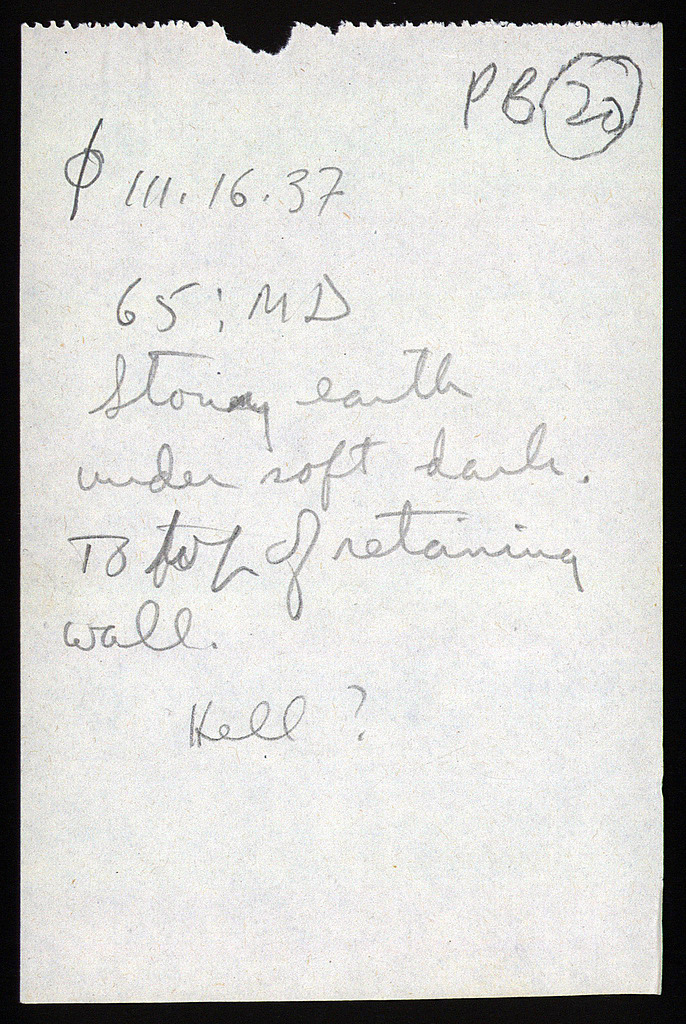 PB 20
φ III.16.37
65 : MD
Stoney earth
under soft dark.
To top of retaining
wall.
Hell ?